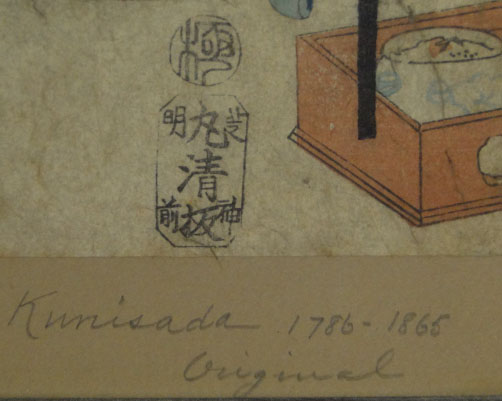 極
芝神
丸清板
明前
Kunisada 1786-1865
Original